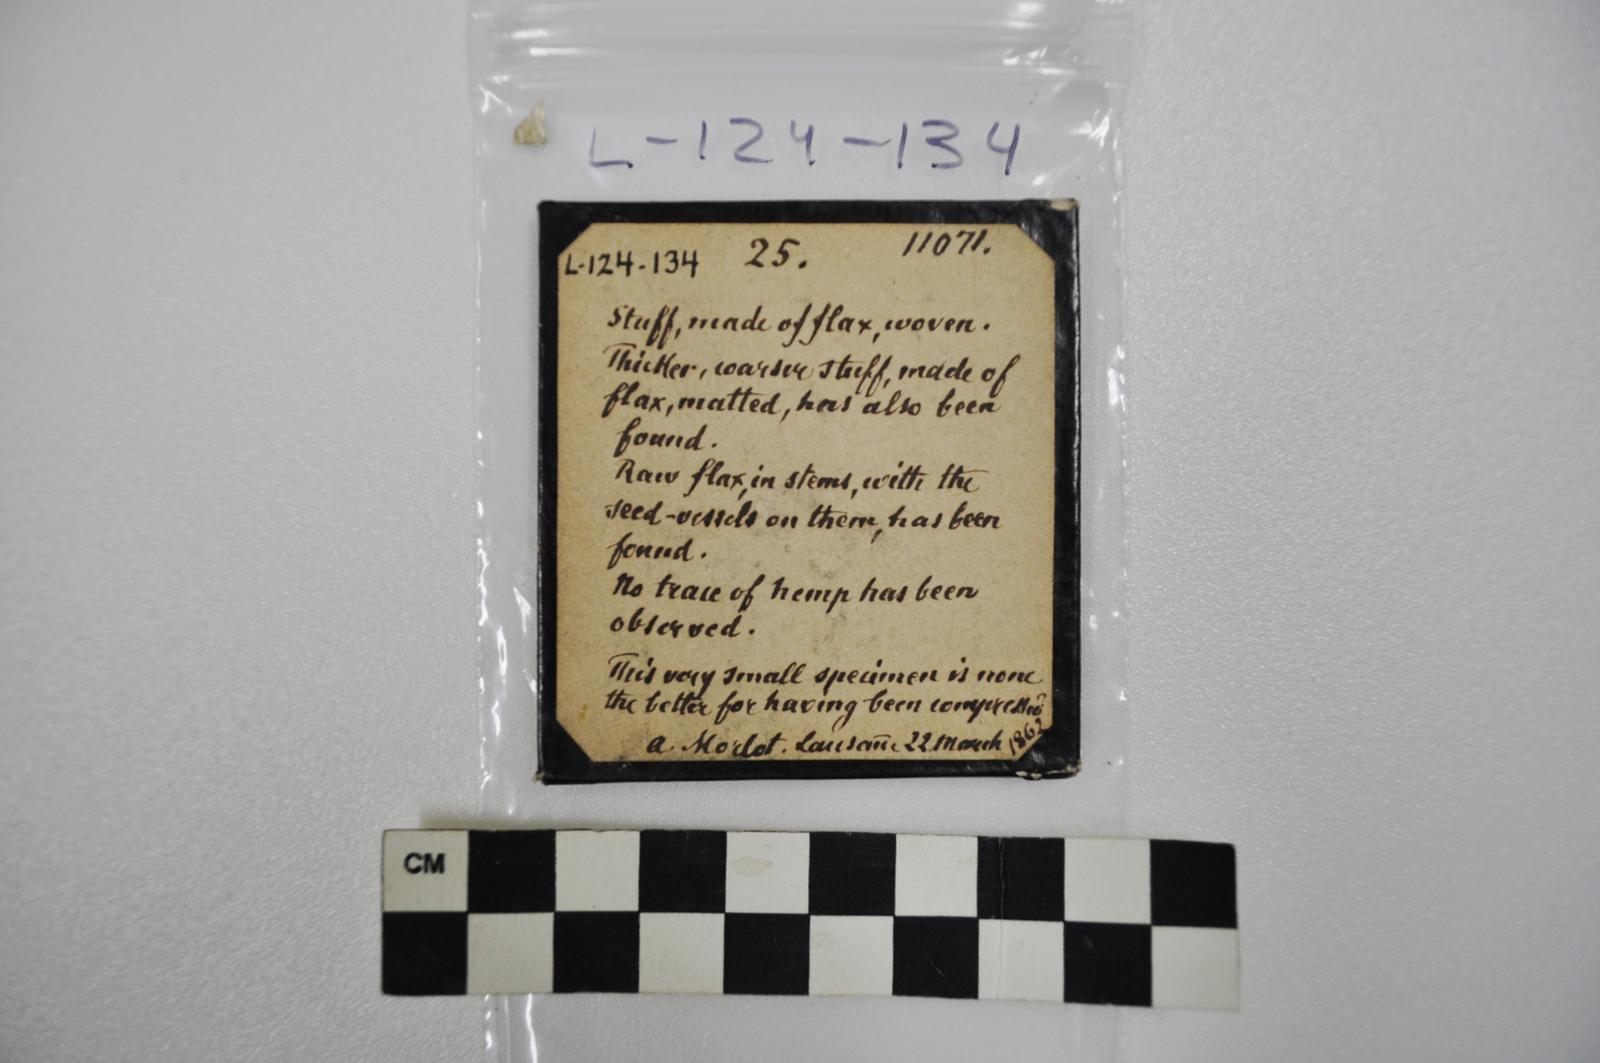 L-124-134
L-124-134 25. 11071.
Stuff, made of flax, woven.
Thicker, coarser stuff, made of
flax, matted, has also been
found.
Raw flax, in stems, with the
seed-vessels on them, has been
found.
No trace of hemp has been
observed.
This very small specimen is none
the better for having been compressed
A. Morlot. Lausanne 22 March 1862
CM